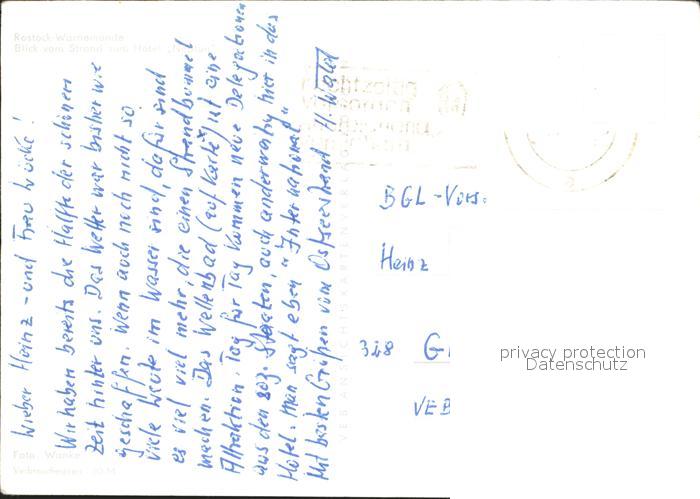 Rostock-Warnemünde
Blick vom Strand zum Hotel „Neptun“
Lieber Heinz - und Frau Lücke!
Wir haben bereits die Hälfte der schönen
Zeit hinter uns. Das Wetter war bisher wie
geschaffen. Wenn auch noch nicht so
viele Leute im Wasser sind, dafür sind
es viel viel mehr, die einen Strandbummel
machen. Das Wellenbad (auf Karte) ist eine
Attraktion. Tag für Tag kommen neue Delegationen
aus den soz. Staaten, auch anderweitig hier in das
Hotel. Man sagt eben „International“
Mit besten Grüßen vom Ostseestrand H.
VEB ANSICHTSKARTENVERLAG
BGL-Vors.
Heinz
328 G
VEB
privacy protection
Datenschutz
Foto: Wanke
Verbraucherpreis